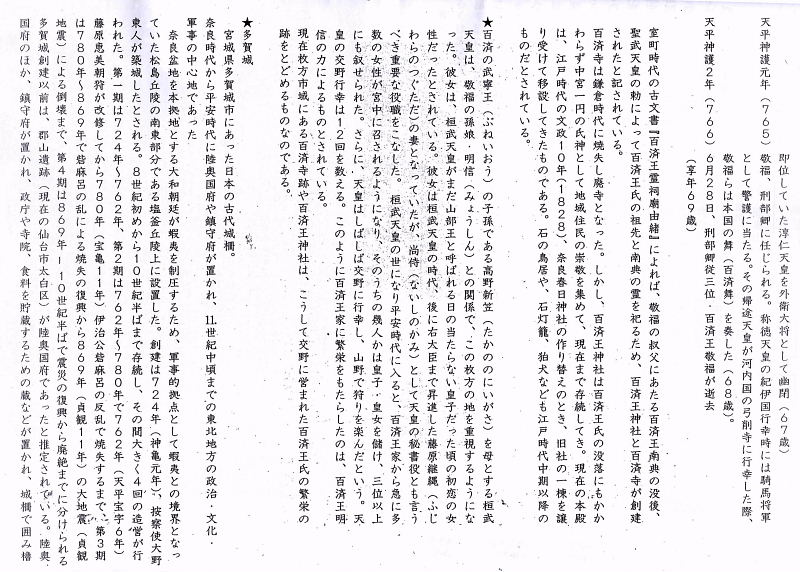 即位していた淳仁天皇を外衛大将として幽閉（67歳）
天平神護元年（765）　敬福、刑部卿に任じられる。称徳天皇の紀伊国行幸時には騎馬将軍
として警護に当たる。その帰途天皇が河内国の弓削寺に行幸した際、
敬福らは本国の舞（百済舞）を奏した（68歳）。
天平神護2年（766）　6月28日、刑部卿従三位・百済王敬福が逝去
（享年69歳）
室町時代の古文書『百済王霊祠廟由緒』によれば、敬福の叔父にあたる百済王南典の没後、
聖武天皇の勅によって百済王氏の祖先と南典の霊を祀るため、百済王神社と百済寺が創建
されたと記されている。
百済寺は鎌倉時代に焼失し廃寺となった。しかし、百済王神社は百済王氏の没落にもかか
わらず中宮一円の氏神として地域住民の崇敬を集めて、現在まで存続してき。現在の本殿
は、江戸時代の文政10年（1828）、奈良春日神社の作り替えのとき、旧社の一棟を譲
り受けて移設してきたものである。石の鳥居や、石灯籠、狛犬なども江戸時代中期以降の
ものだとされている。
★百済の武寧王（ぶねいおう）の子孫である高野新笠（たかののにいがさ）を母とする桓武
天皇は、敬福の孫娘・明信（みょうしん）との関係で、この枚方の地を重視するようにな
った。彼女は、桓武天皇がまだ山部王と呼ばれる日の当たらない皇子だった頃の初恋の女
性だったとされている。彼女は桓武天皇の時代、後に右大臣まで昇進した藤原継縄（ふじ
わらのつぐただ）の妻となっていたが、尚侍（ないしのかみ）として天皇の秘書役とも言う
べき重要な役職をこなした。桓武天皇の世になり平安時代に入ると、百済王家から急に多
数の女性が宮中に召されるようになり、そのうちの幾人かは皇子・皇女を儲け、三位以上
にも叙せられた。さらに、天皇はしばしば交野に行幸し、山野で狩りを楽んだという。天
皇の交野行幸は12回を数える。このように百済王家に繁栄をもたらしたのは、百済王明
信の力によるものとされている。
現在枚方市域にある百済寺跡や百済王神社は、こうして交野に営まれた百済王氏の繁栄の
跡をとどめるものなのである。
★多賀城
宮城県多賀城市にあった日本の古代城柵。
奈良時代から平安時代に陸奥国府や鎮守府が置かれ、11世紀中頃までの東北地方の政治・文化・
軍事の中心地であった
奈良盆地を本拠地とする大和朝廷が蝦夷を制圧するため、軍事的拠点として蝦夷との境界となっ
ていた松島丘陵の南東部分である塩釜丘陵上に設置した。創建は724年（神亀元年）、按察使大野
東人が築城したとされる。8世紀初めから10世紀半ばまで存続し、その間大きく4回の造営が行
われた。第一期は724年～762年、第2期は762年～780年で762年（天平宝字6年）
藤原恵美朝狩が改修してから780年（宝亀11年）伊治公砦麻呂の反乱で焼失するまで、第3期
は780年～869年で砦麻呂の乱による焼失の復興から869年（貞観11年）の大地震（貞観
地震）による倒壊まで、第4期は869年－10世紀半ばで震災の復興から廃絶までに分けられる
多賀城創建以前は、郡山遺跡（現在の仙台市太白区）が陸奥国府であったと推定されている。陸奥
国府のほか、鎮守府が置かれ、政庁や寺院、食料を貯蔵するための蔵などが置かれ、城柵で囲み櫓